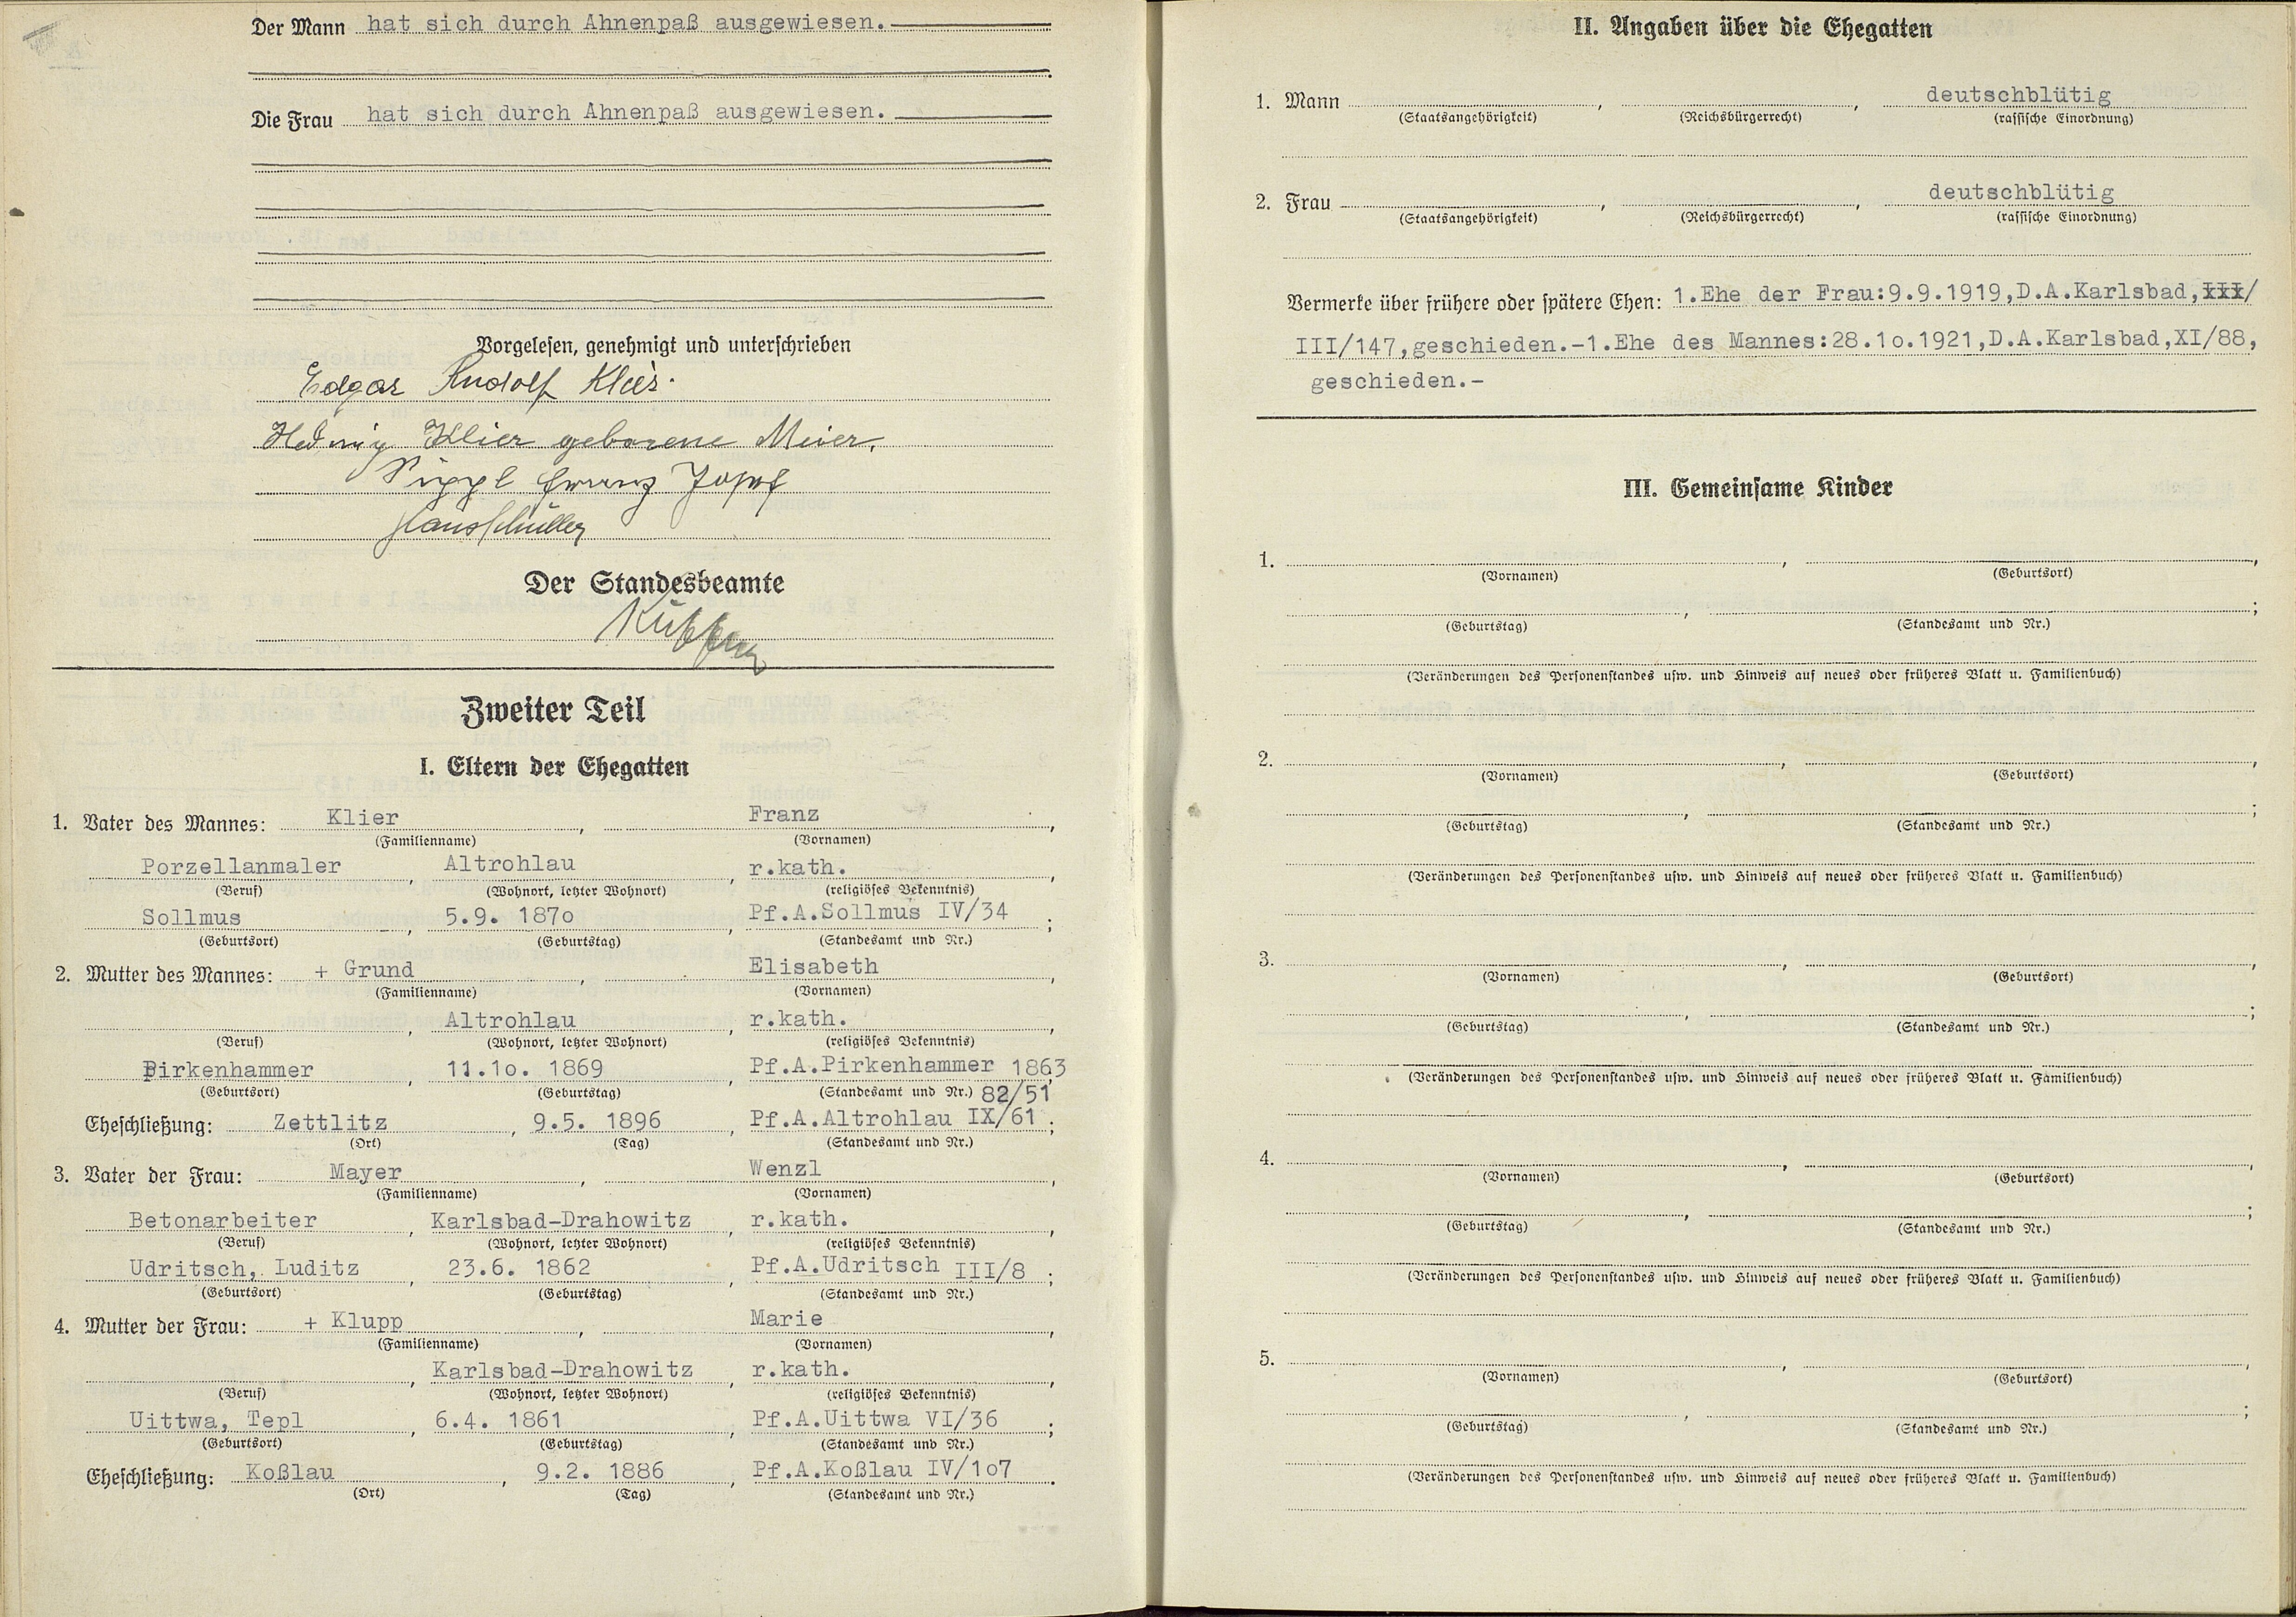 Der Mann hat sich durch Ahnenpaß ausgewiesen.
Die Frau hat sich durch Ahnenpaß ausgewiesen.
Vorgelesen, genehmigt und unterschrieben
Edgar Rudolf Klier.
Hedwig Klier geborene Meier.
Franz Josef
Hans Müller
Der Standesbeamte
Zweiter Teil
I. Eltern der Ehegatten
1. Vater des Mannes: Klier, Franz,
(Familienname) (Vornamen)
Porzellanmaler, Altrohlau, r.kath.,
(Beruf) (Wohnort, letzter Wohnort) (religiöses Bekenntnis)
Sollmus, 5.9. 187o, Pf.A.Sollmus IV/34;
(Geburtsort) (Geburtstag) (Standesamt und Nr.)
2. Mutter des Mannes: + Grund, Elisabeth,
(Familienname) (Vornamen)
, Altrohlau, r.kath.,
(Beruf) (Wohnort, letzter Wohnort) (religiöses Bekenntnis)
Pirkenhammer, 11.1o. 1869, Pf.A.Pirkenhammer 1863
(Geburtsort) (Geburtstag) (Standesamt und Nr.) 82/51
Eheschließung: Zettlitz, 9.5. 1896, Pf.A.Altrohlau IX/61;
(Ort) (Tag) (Standesamt und Nr.)
3. Vater der Frau: Mayer, Wenzl,
(Familienname) (Vornamen)
Betonarbeiter, Karlsbad-Drahowitz, r.kath.,
(Beruf) (Wohnort, letzter Wohnort) (religiöses Bekenntnis)
Udritsch, Luditz, 23.6. 1862, Pf.A.Udritsch III/8;
(Geburtsort) (Geburtstag) (Standesamt und Nr.)
4. Mutter der Frau: + Klupp, Marie,
(Familienname) (Vornamen)
, Karlsbad-Drahowitz, r.kath.,
(Beruf) (Wohnort, letzter Wohnort) (religiöses Bekenntnis)
Uittwa, Tepl, 6.4. 1861, Pf.A.Uittwa VI/36;
(Geburtsort) (Geburtstag) (Standesamt und Nr.)
Eheschließung: Koßlau, 9.2. 1886, Pf.A.Koßlau IV/1o7.
(Ort) (Tag) (Standesamt und Nr.)
II. Angaben über die Ehegatten
1. Mann , , deutschblütig
(Staatsangehörigkeit) (Reichsbürgerrecht) (rassische Einordnung)
2. Frau , , deutschblütig
(Staatsangehörigkeit) (Reichsbürgerrecht) (rassische Einordnung)
Vermerke über frühere oder spätere Ehen: 1.Ehe der Frau:9.9.1919,D.A.Karlsbad,xxx/
III/147,geschieden.-1.Ehe des Mannes:28.1o.1921,D.A.Karlsbad,XI/88,
geschieden.-
III. Gemeinsame Kinder
1. , ,
(Vornamen) (Geburtsort)
, ;
(Geburtstag) (Standesamt und Nr.)
(Veränderungen des Personenstandes usw. und Hinweis auf neues oder früheres Blatt u. Familienbuch)
2. , ,
(Vornamen) (Geburtsort)
, ;
(Geburtstag) (Standesamt und Nr.)
(Veränderungen des Personenstandes usw. und Hinweis auf neues oder früheres Blatt u. Familienbuch)
3. , ,
(Vornamen) (Geburtsort)
, ;
(Geburtstag) (Standesamt und Nr.)
(Veränderungen des Personenstandes usw. und Hinweis auf neues oder früheres Blatt u. Familienbuch)
4. , ,
(Vornamen) (Geburtsort)
, ;
(Geburtstag) (Standesamt und Nr.)
(Veränderungen des Personenstandes usw. und Hinweis auf neues oder früheres Blatt u. Familienbuch)
5. , ,
(Vornamen) (Geburtsort)
, ;
(Geburtstag) (Standesamt und Nr.)
(Veränderungen des Personenstandes usw. und Hinweis auf neues oder früheres Blatt u. Familienbuch)